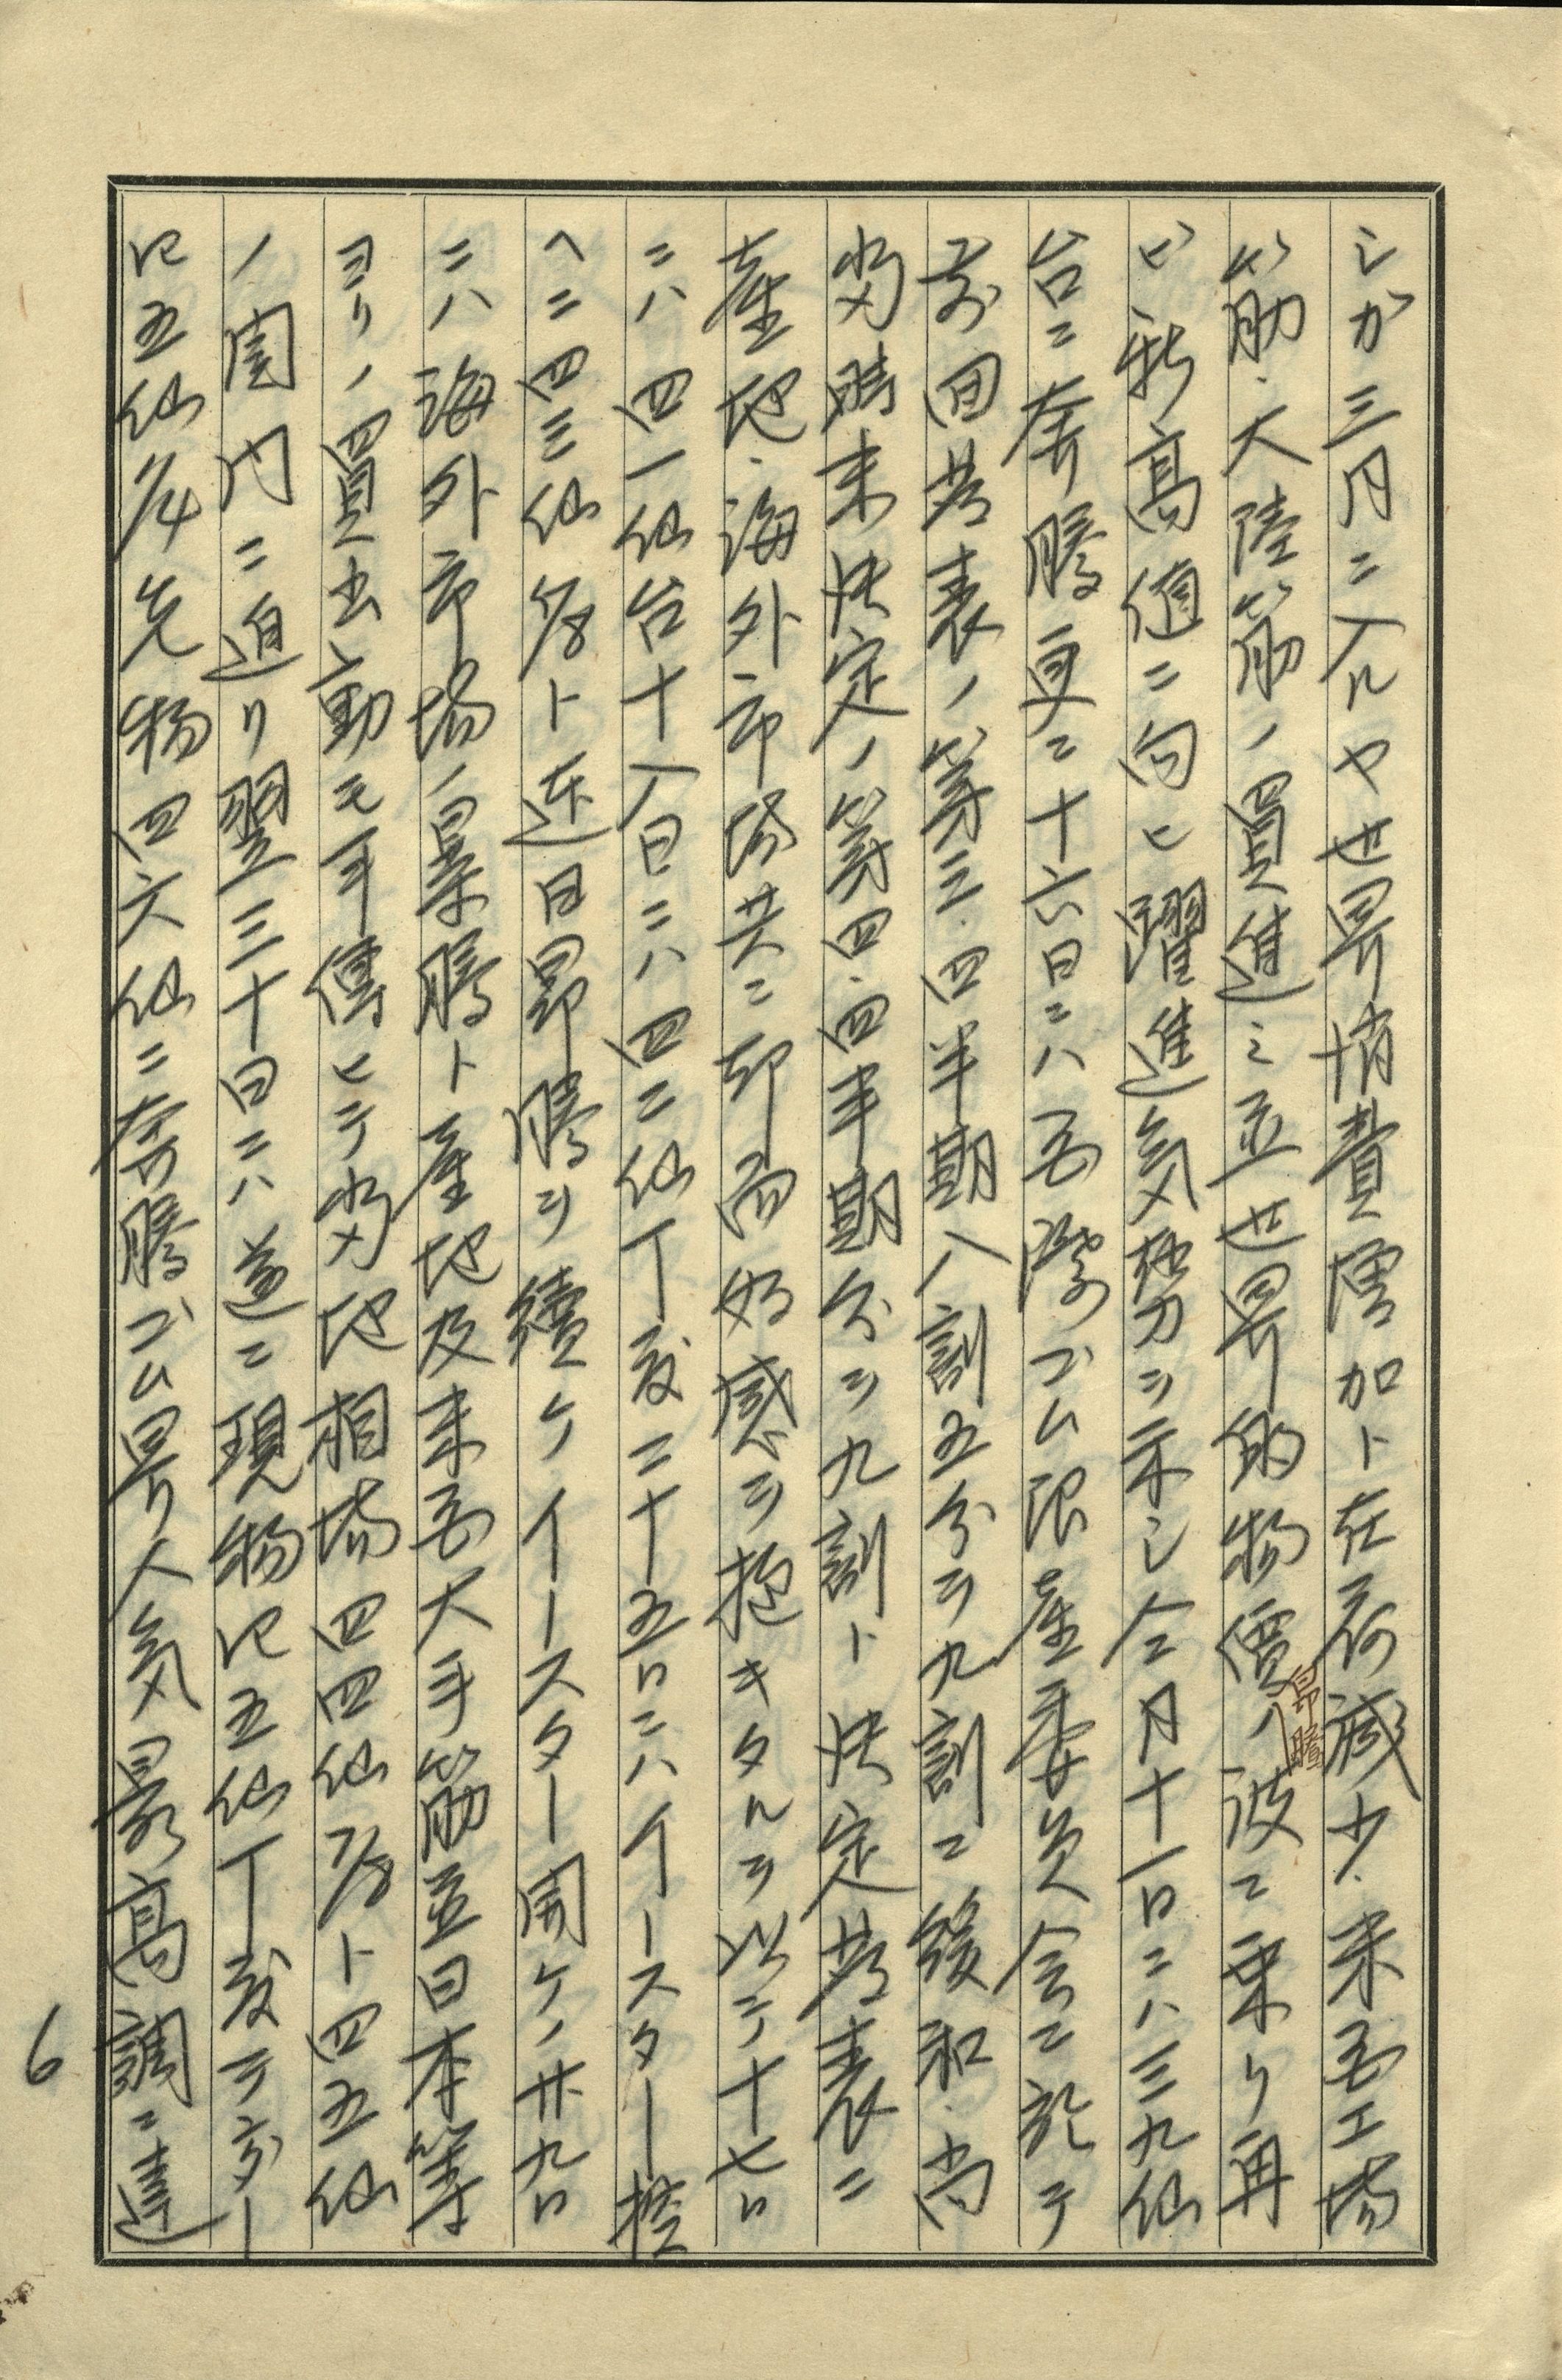 シガ三月ニ入ルヤ世界消費増加ト在荷減少、米国工場
筋、大陸筋ノ買進ミ並世界的物價ノ昂騰ノ波ニ乗リ再
ビ新高値ニ向ヒ躍進気勢ヲ示シ仝月十一日ニハ三九仙
台ニ奔騰更ニ十六日ニハ国際ゴム限産委員会ニ於テ
前回発表ノ第三、四半期八割五分ヲ九割ニ緩和、尚
当時未決定ノ第四、四半期分ヲ九割ト決定発表ニ
産地、海外市場共ニ却而好感ヲ抱キタルヲ以テ十七日
ニハ四一仙台十八日ニハ四二仙丁度二十五日ニハイースター控
ヘニ四三仙5/8ト連日昂騰ヲ續ケイースター開ケノ廿九日
ニハ海外市場ノ暴騰ト産地及米国大手筋並日本等
ヨリノ買出動モ手傳ヒテ当地相場四四仙7/8ト四五仙
ノ関門ニ迫リ翌三十日ニハ遂ニ現物四五仙丁度テンダー
四五仙1/4先物四六仙ニ奔騰ゴム界人気最高調ニ達
6